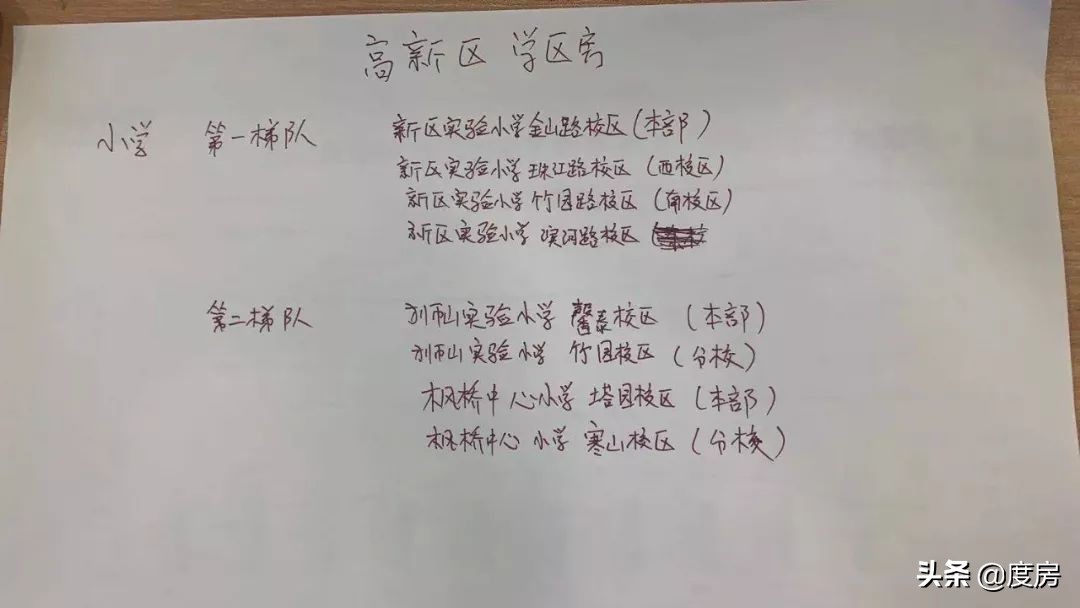 高新区 学区房
小学 第一梯队 新区实验小学金山路校区(本部)
新区实验小学 珠江路校区 (西校区)
新区实验小学 竹园路校区 (南校区)
新区实验小学 滨河路校区
第二梯队 狮山实验小学 馨泰校区 (本部)
狮山实验小学 竹园校区 (分校)
枫桥中心小学 塔园校区 (本部)
枫桥中心小学 寒山校区 (分校)
头条 @度房